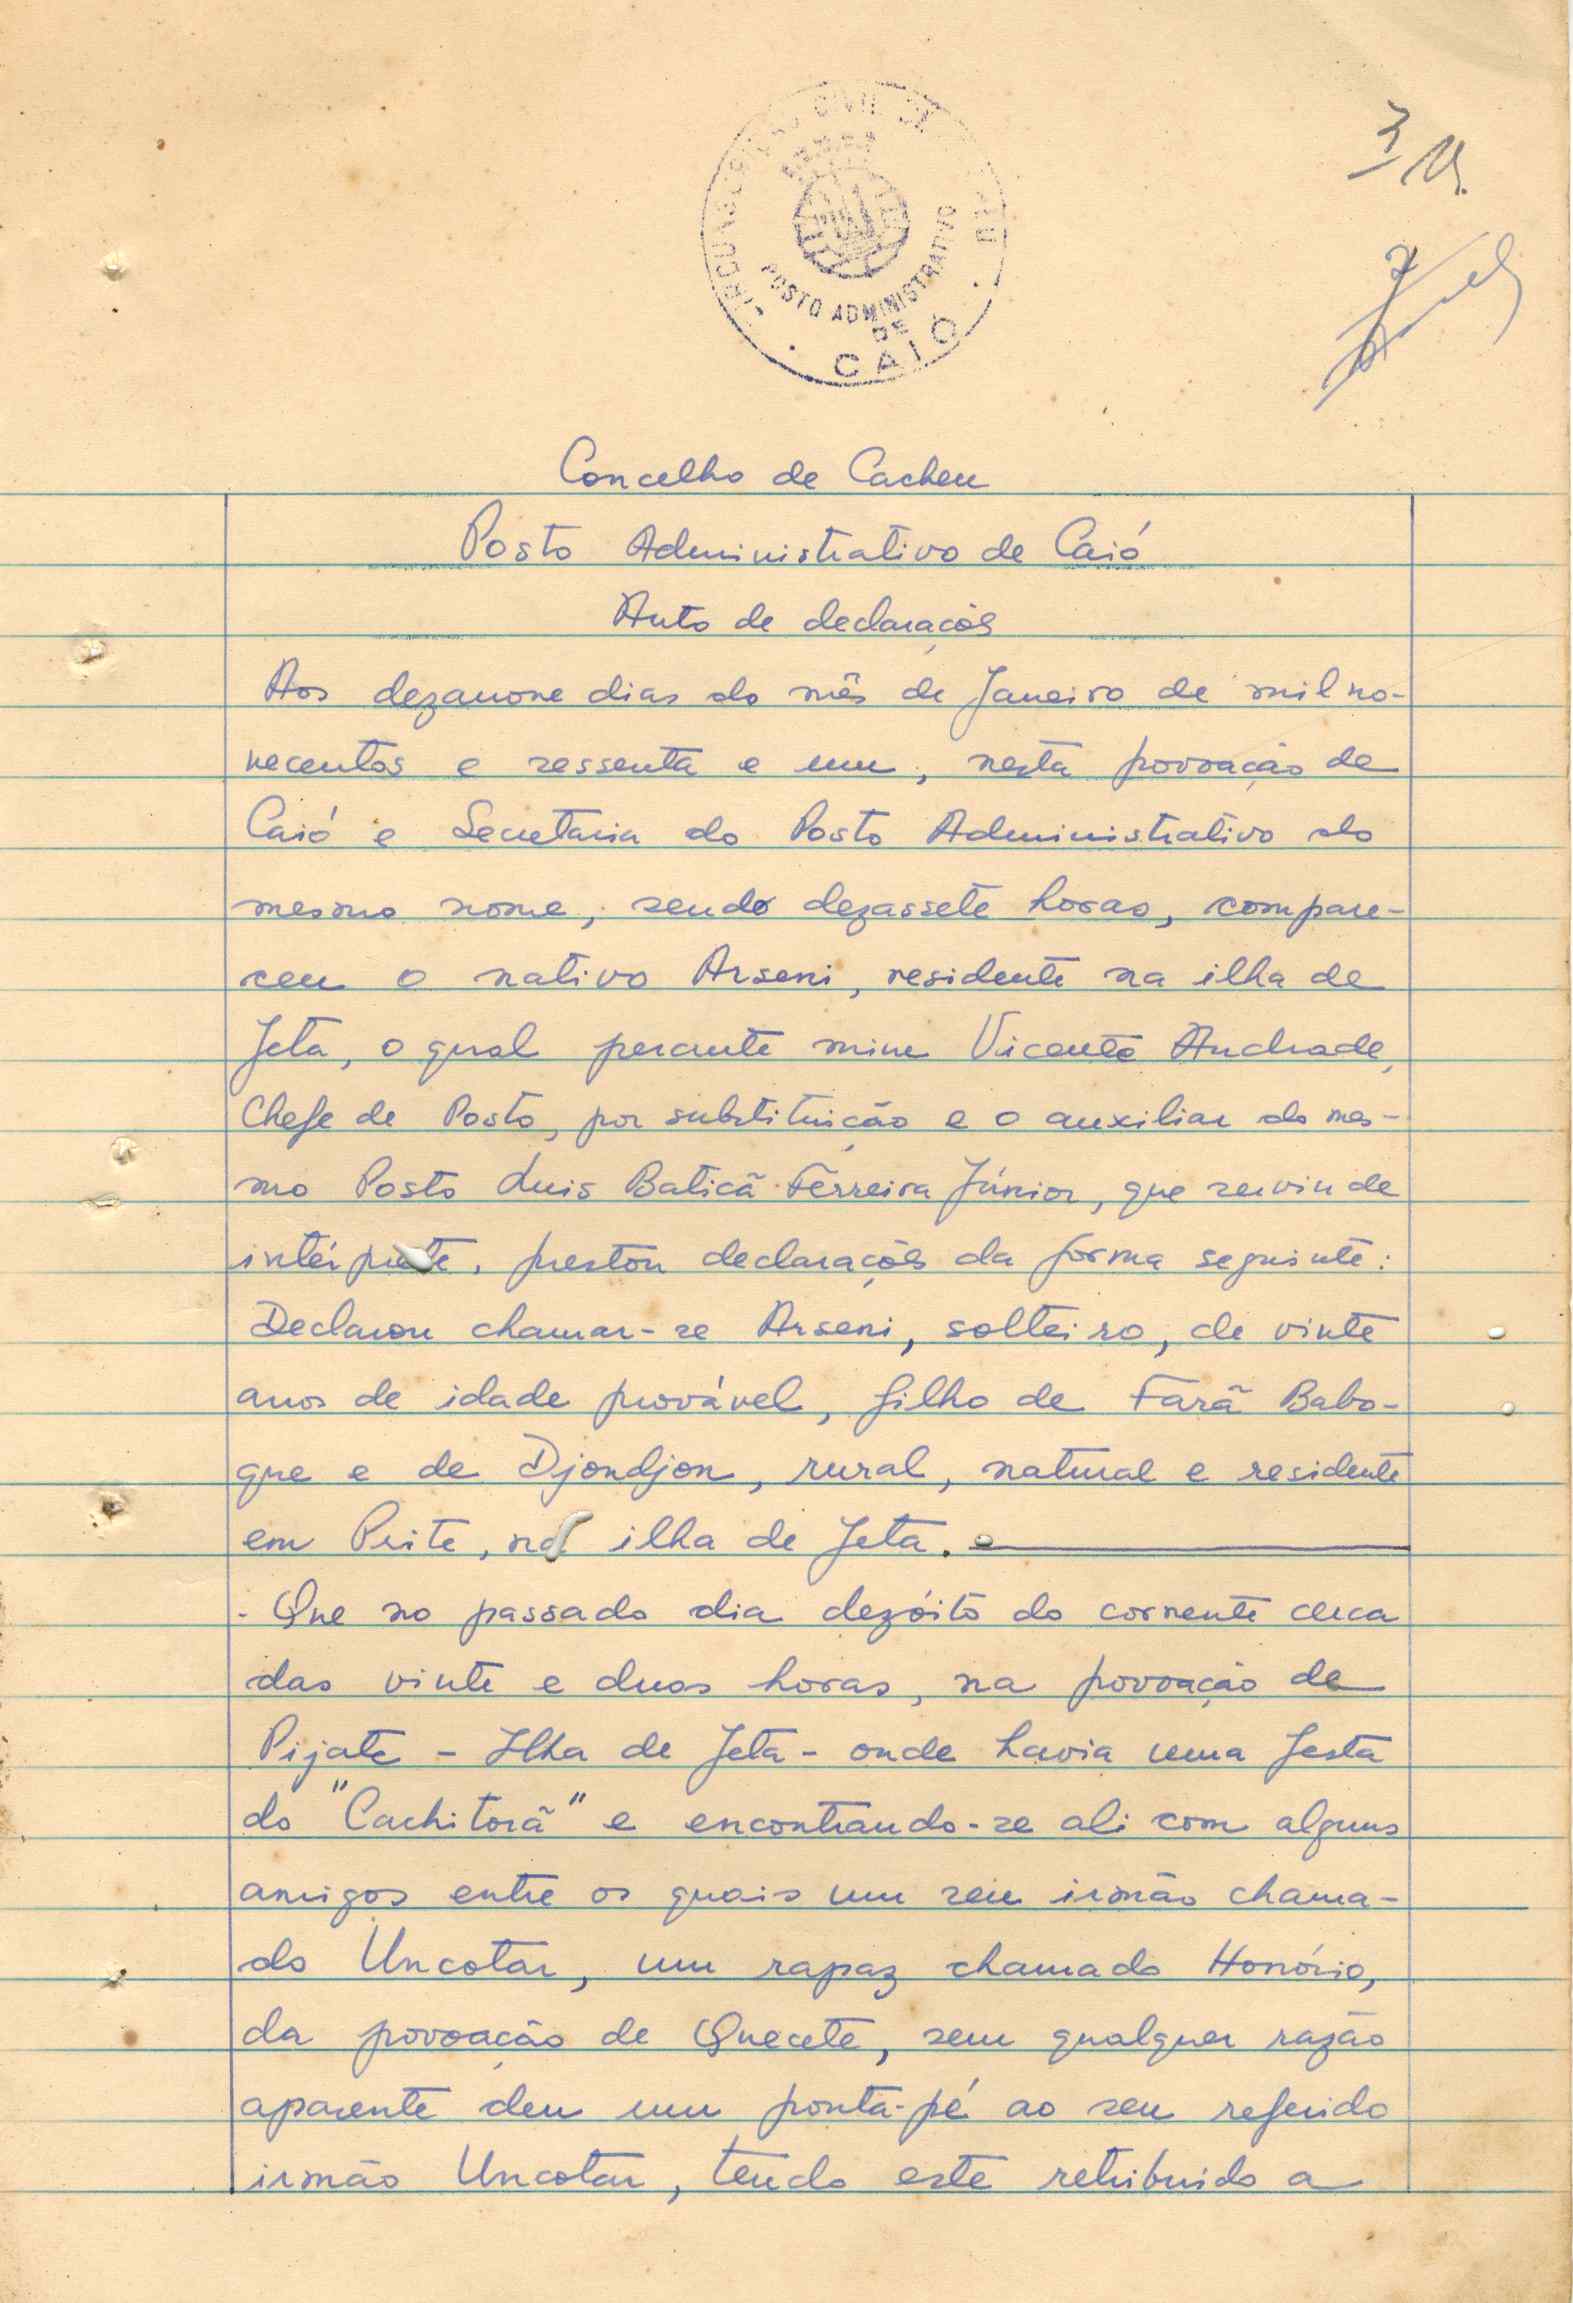 CIRCUNSCRIÇÃO CIVIL DE
POSTO ADMINISTRATIVO
DE
CAIÓ
3
Concelho de Cacheu
Posto Administrativo de Caió
Auto de declarações
Aos dezanove dias do mês de Janeiro de mil no-
vecentos e sessenta e um, nesta povoação de
Caió e Secretaria do Posto Administrativo do
mesmo nome, sendo dezassete horas, compare-
ceu o nativo Arseni, residente na ilha de
Jeta, o qual perante mim Vicente Andrade,
Chefe de Posto, por substituição e o auxiliar do mes-
mo Posto Luis Baticã Ferreira Júnior, que serviu de
intérprete, prestou declarações da forma seguinte:
Declarou chamar-se Arseni, solteiro, de vinte
anos de idade provável, filho de Farã Babo-
que e de Djondjon, rural, natural e residente
em Prite, na ilha de Jeta.
- Que no passado dia dezóito do corrente cerca
das vinte e duas horas, na povoação de
Pijate - Ilha de Jeta - onde havia uma festa
do "Cachitorã" e encontrando-se ali com alguns
amigos entre os quais um seu irmão chama-
do Uncotar, um rapaz chamado Honório,
da povoação de Quecete, sem qualquer razão
aparente deu um ponta-pé ao seu referido
irmão Uncotar, tendo este retribuido a